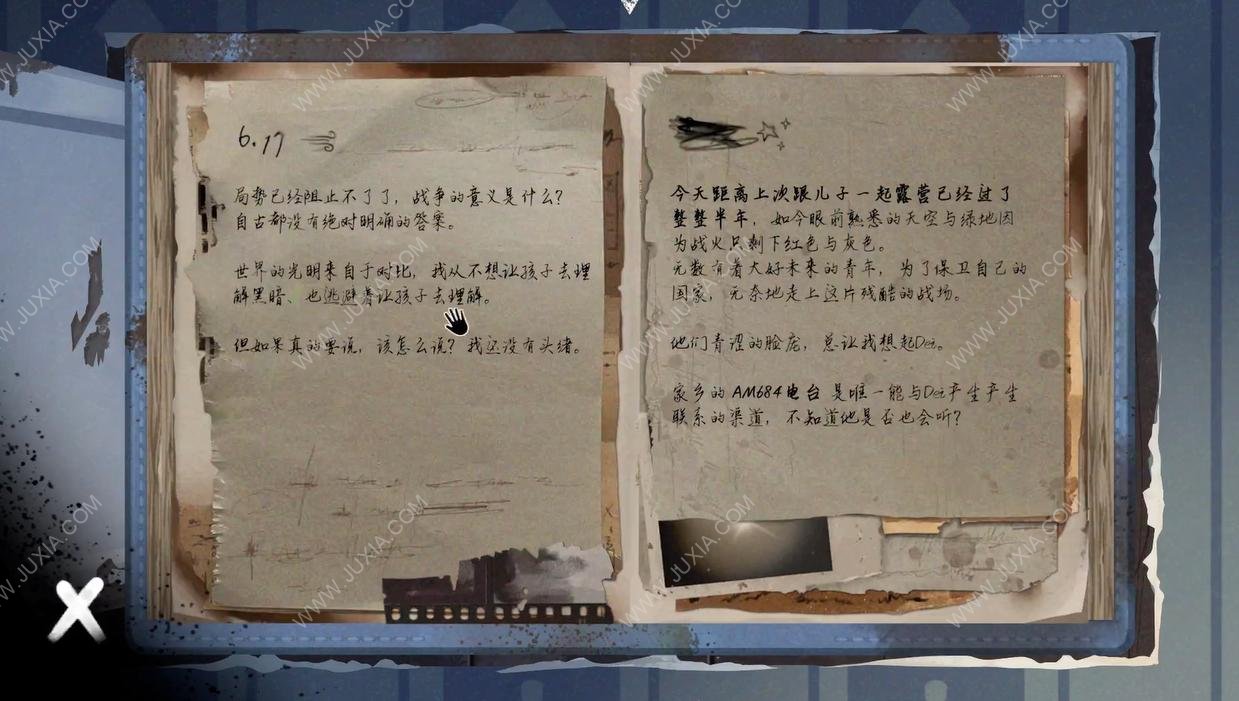 6.17
局势已经阻止不了了，战争的意义是什么？
自古都没有绝对明确的答案。
世界的光明来自于对比，我从不想让孩子去理
解黑暗、也逃避着让孩子去理解。
但如果真的要说，该怎么说？我还没有头绪。
今天距离上次跟儿子一起露营已经过了
整整半年，如今眼前熟悉的天空与绿地因
为战火只剩下红色与灰色。
无数有着大好未来的青年，为了保卫自己的
国家，无奈地走上这片残酷的战场。
他们青涩的脸庞，总让我想起Dei。
家乡的 AM684电台 是唯一能与Dei产生产生
联系的渠道，不知道他是否也会听？
WWW.JUXIA.COM
WWW.JUXIA.COM
WWW.JUXIA.COM
WWW.JUXIA.COM
WWW.JUXIA.COM
WWW.JUXIA.COM
WWW.JUXIA.COM
WWW.JUXIA.COM
WWW.JUXIA.COM
WWW.JUXIA.COM
WWW.JUXIA.COM